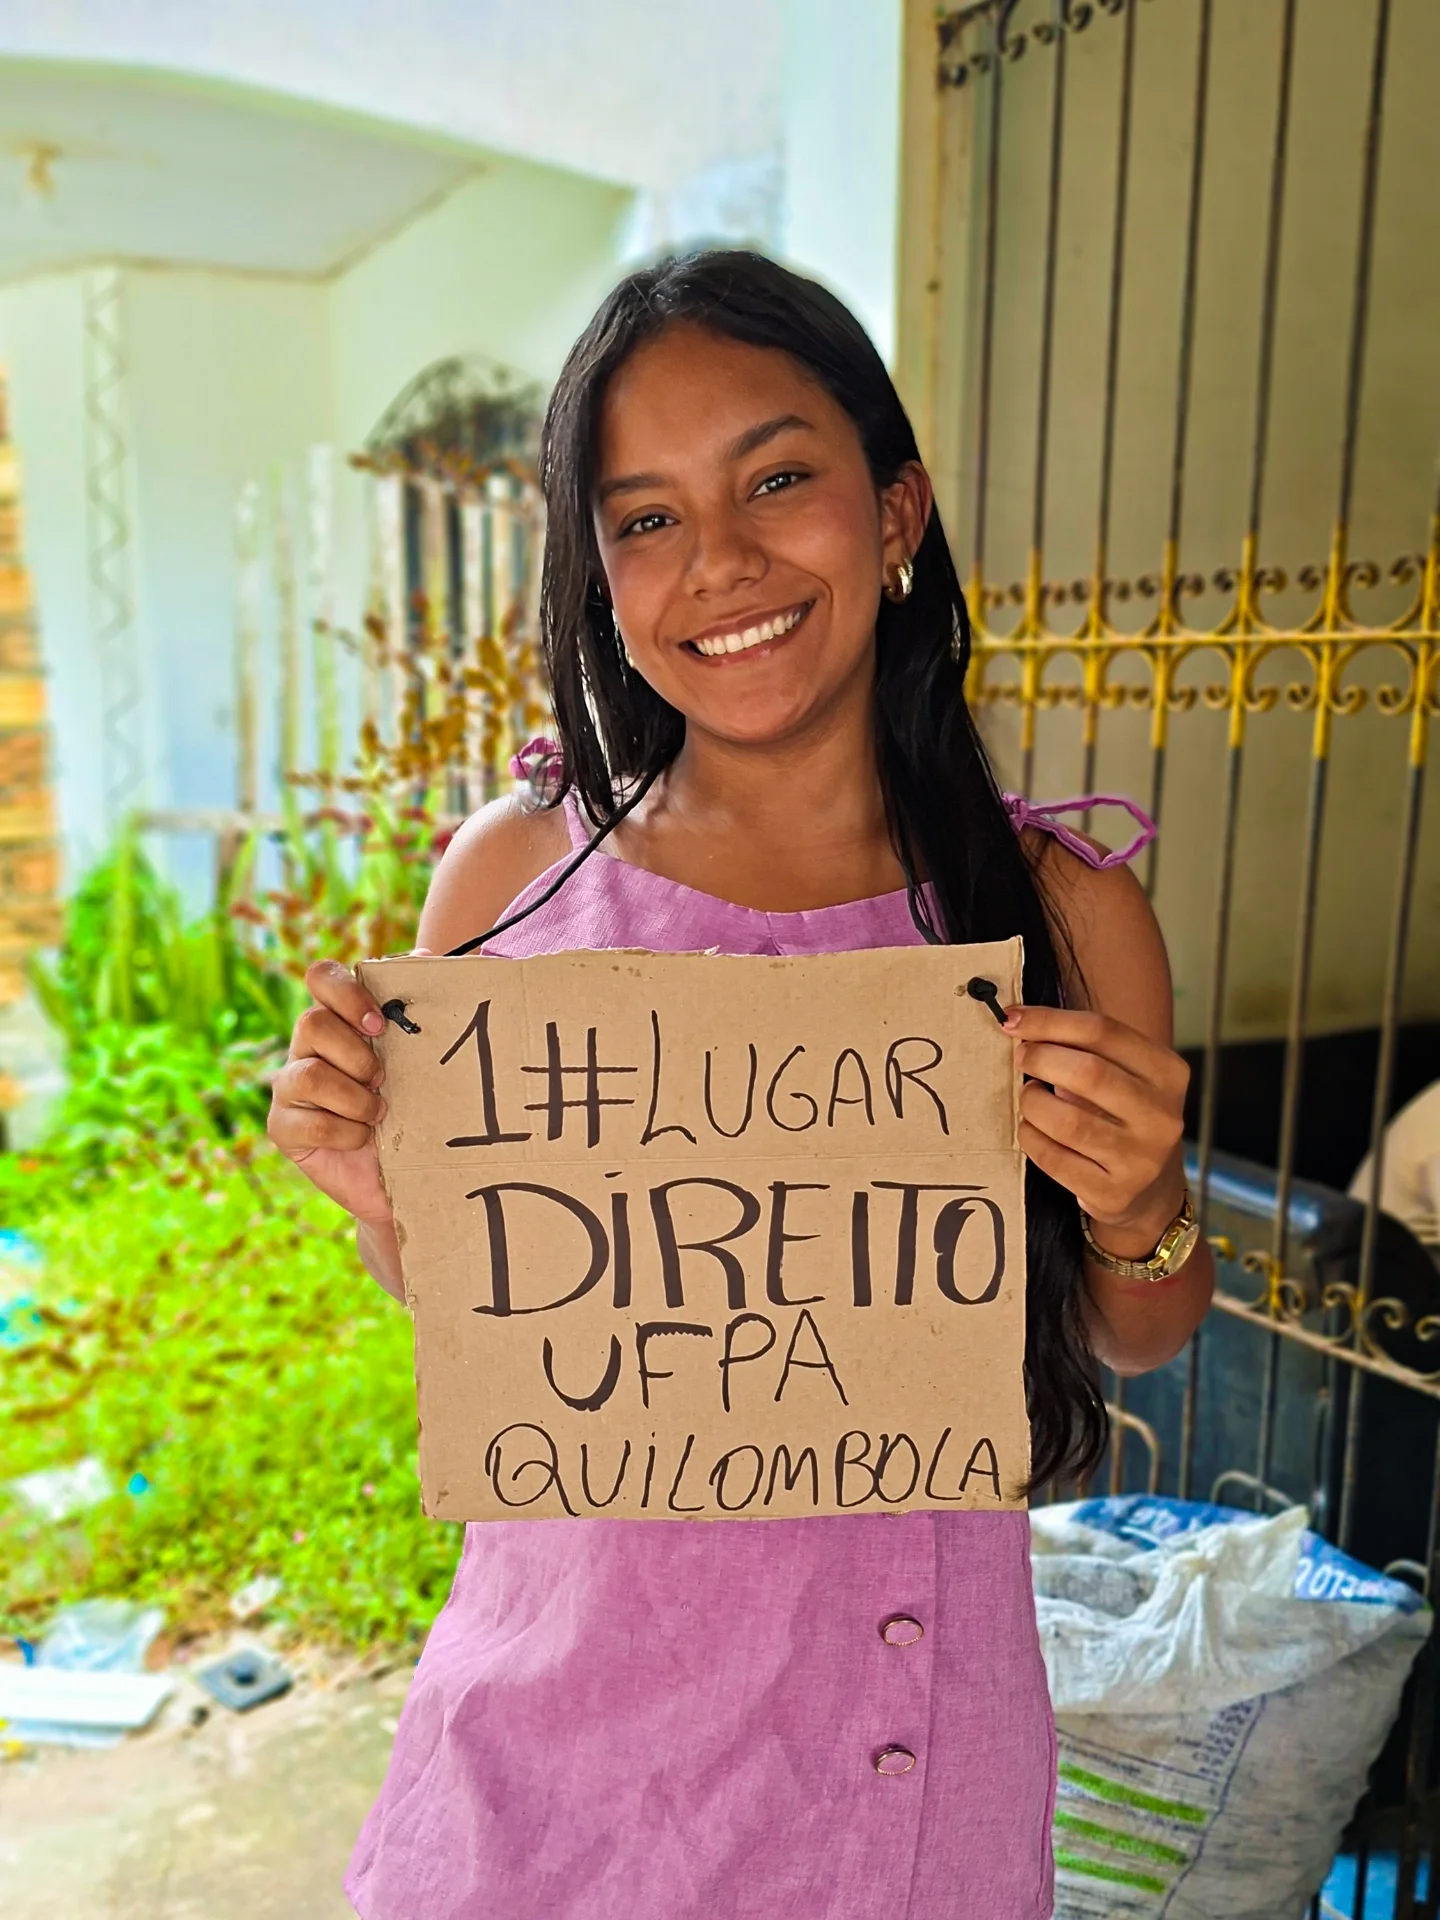 1#LUGAR
DiREITO
UFPA
QUiLOMBOLA